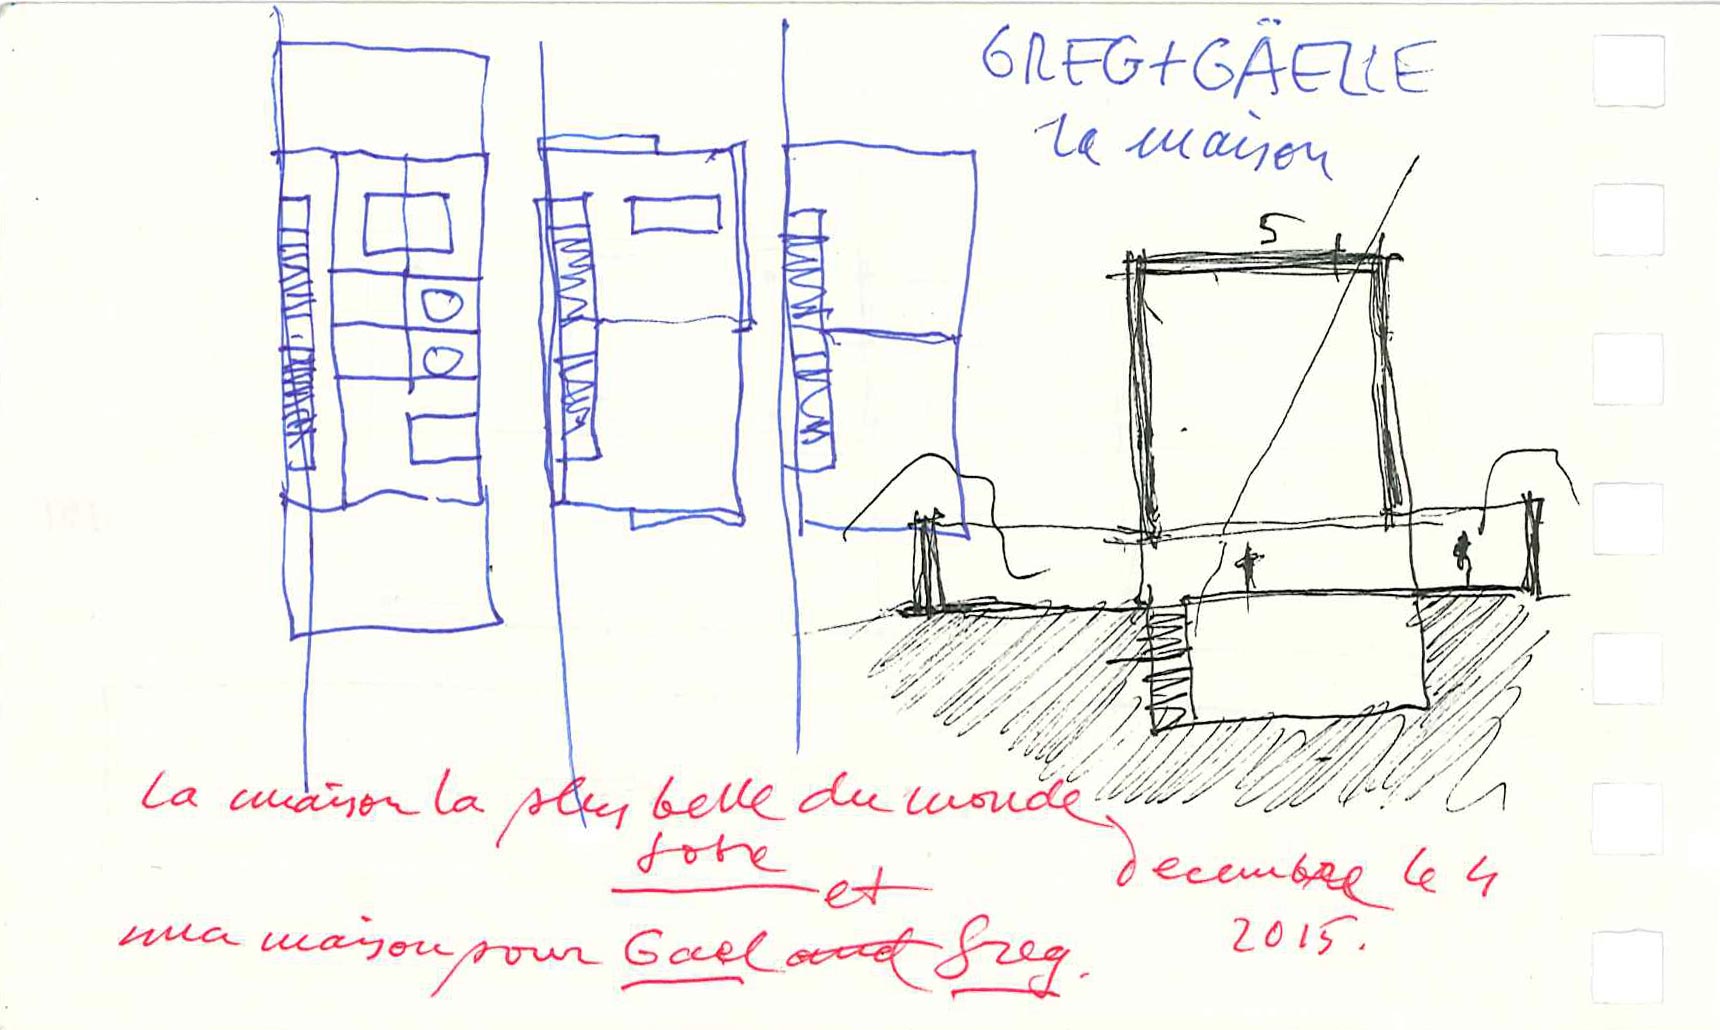 GREG+GÄELLE
la maison
5
la maison la plus belle du monde
sobre
et
una maison pour Gael and Greg.
decembre le 4
2015.